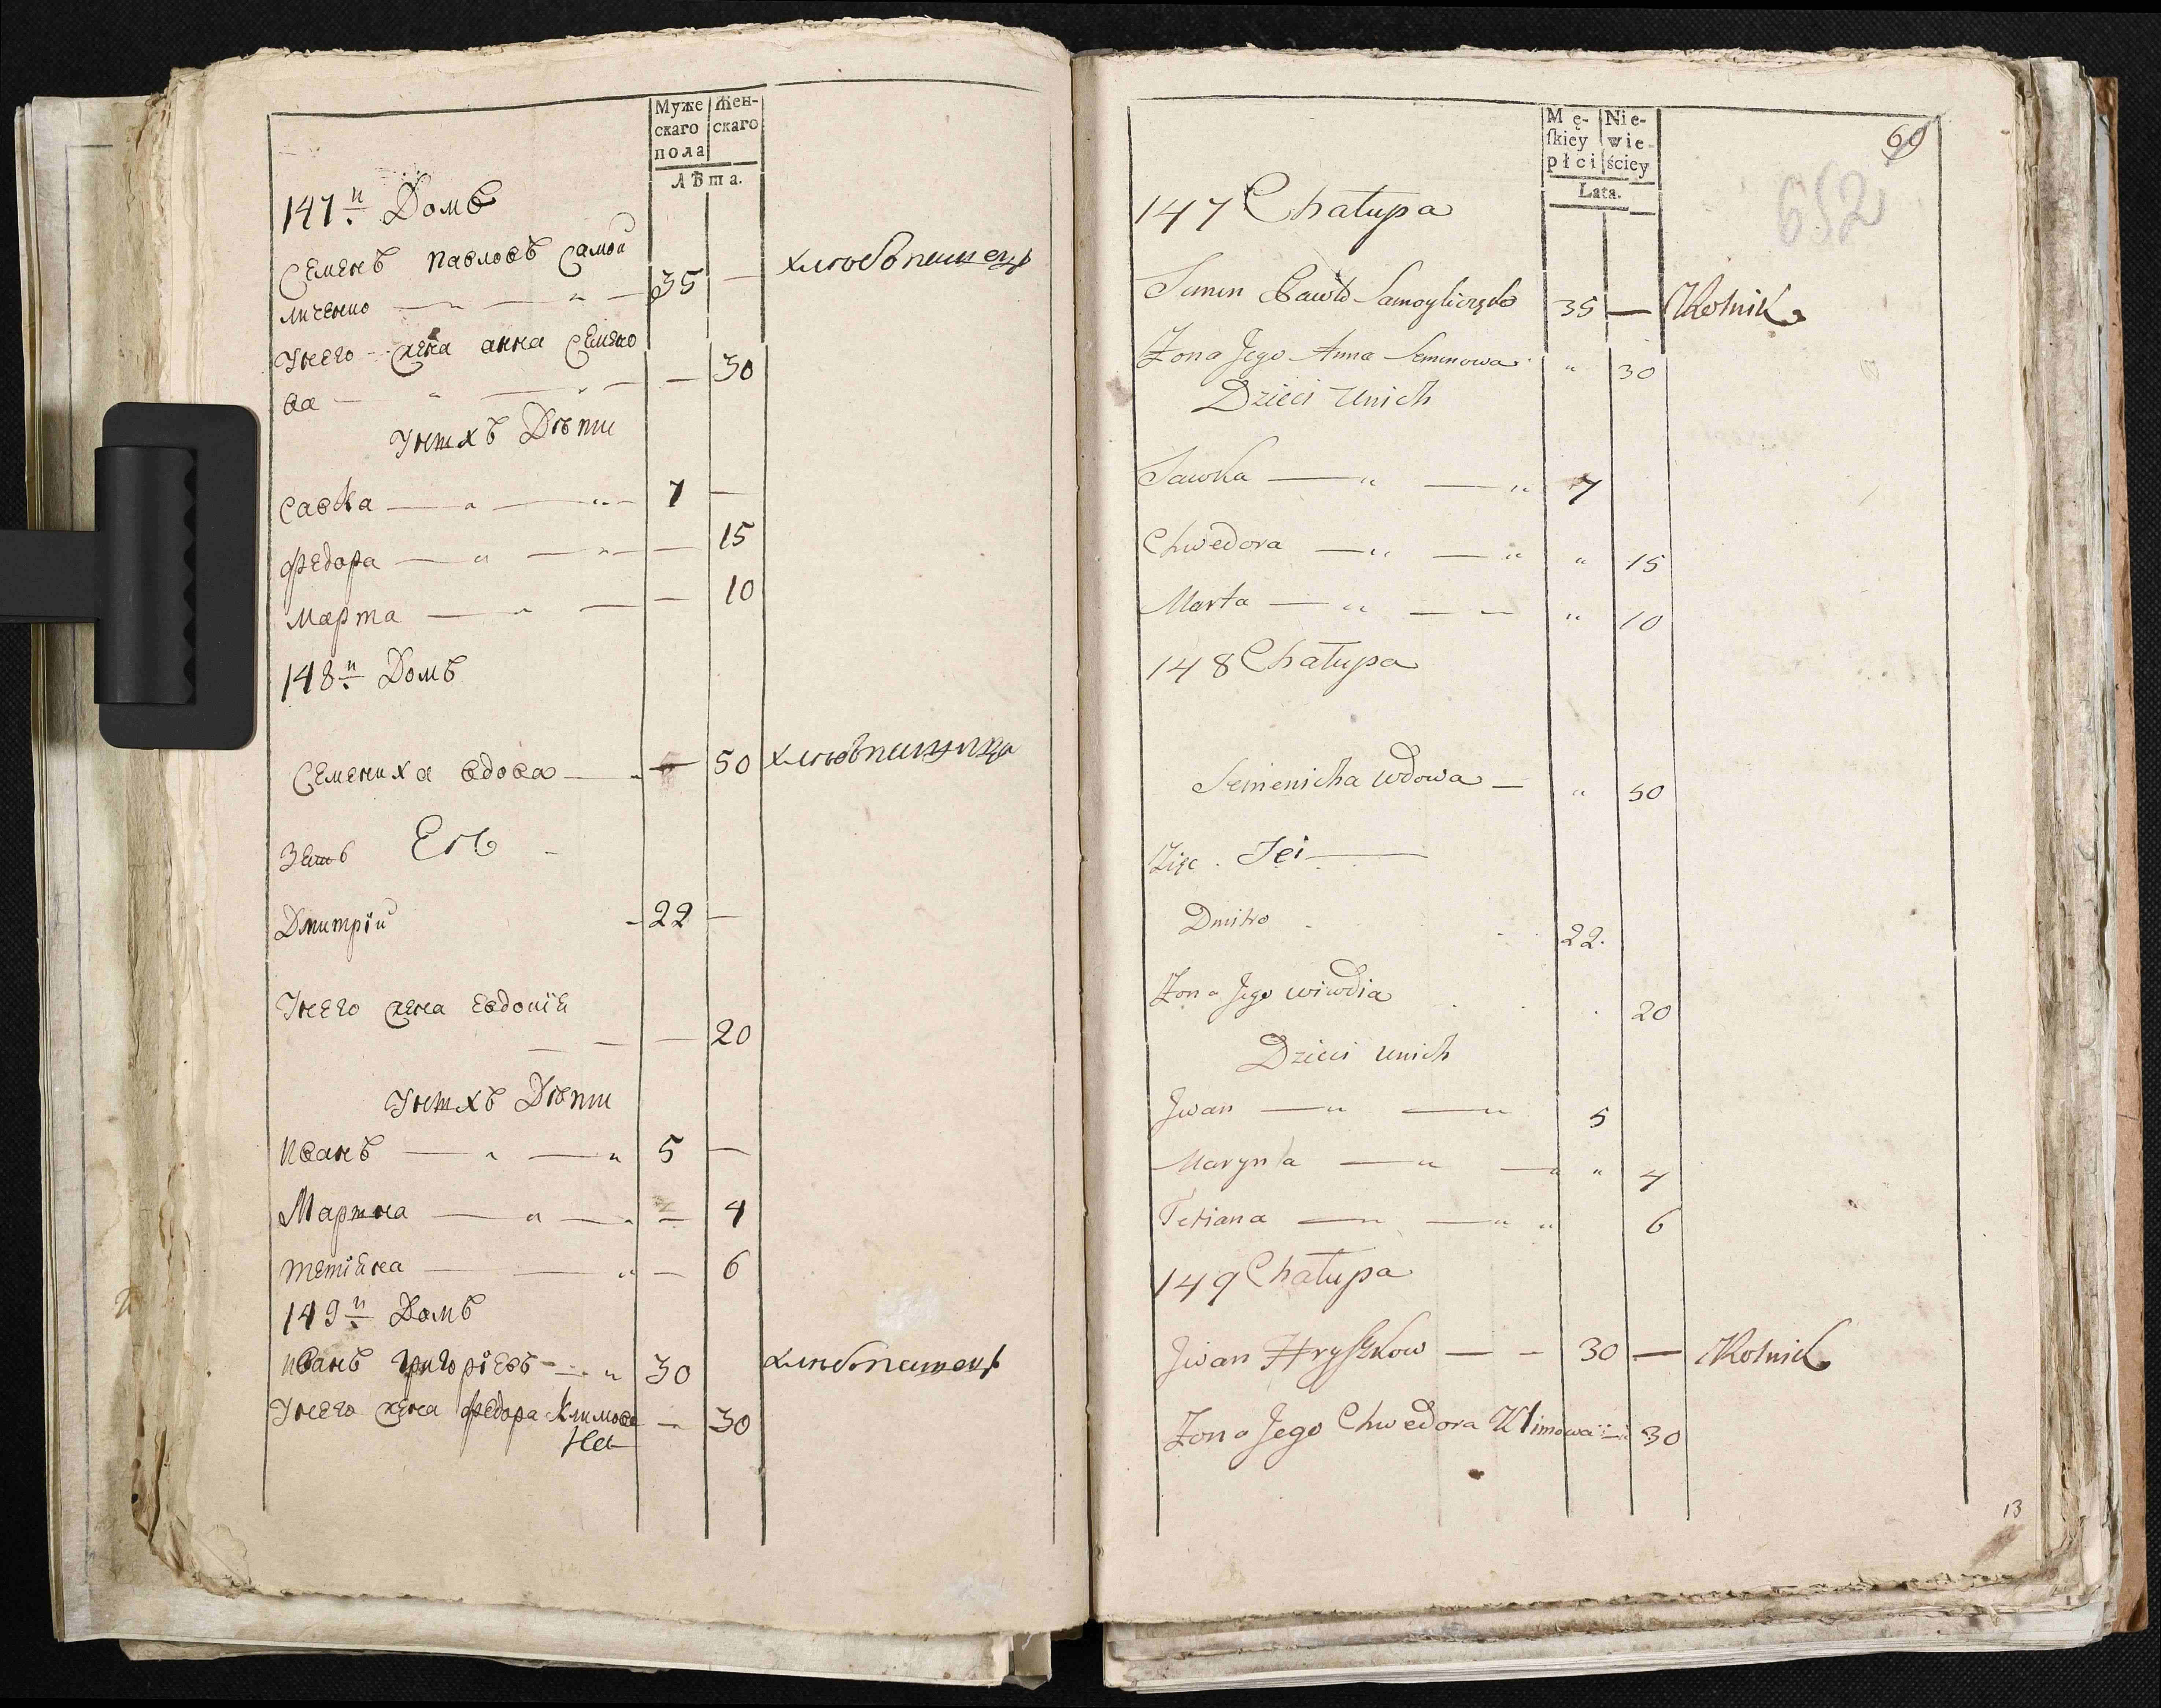 Муже
скаго
пола
Жен-
скаго
Лѣта.
147й Домъ
Семенъ Павловъ Самой
личенко — „ — „ — 35 — хлѣбопашецъ
У него жена анна Семено
ва — „ — „ — — 30
У нихъ Дѣти
Савка — „ — „ — 7 —
Федора — „ — „ — — 15
Марта — „ — — 10
148й Домъ
Семениха вдова — „ — 50 хлѣбопашница
Зеть Еѣ -
Дмитрїй - 22 —
У него жена Евдокїя
— — — 20
У нихъ Дѣти
Иванъ — „ — „ 5 —
Марина — „ — „ — 4
Тетїяна — — „ — 6
149й Домъ
Иванъ Григорїевъ — „ 30 хлѣбопашецъ
У него жена Федора Климова — 30
На
Mę-
ſkiey
płci
Nie-
wie-
ściey
Lata.
69
652
147 Chałupa
Semen Pawło Samoyliczęko 35 — Rolnik
Żona Jego Anna Semenowa „ 30
Dzieci Unich
Sawka — „ — „ 7
Chwedora — „ — „ „ 15
Marta — „ — — „ 10
148 Chałupa
Semenicha Wdowa — „ 50
Zięć . Jei —
Dmitro 22.
Żona Jego Wiwdia . 20
Dzieci Unich
Jwan — „ — „ 5
Maryna — „ — „ „ 4
Tetiana — „ — „ „ 6
149 Chałupa
Jwan Hryſzkow — - 30 — Rolnik
Żona Jego Chwedora Klimowa — 30
13